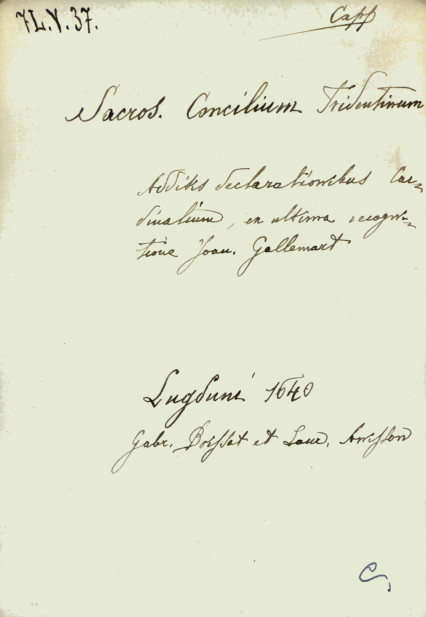 7L.V.37.
Capp
Sacros. Concilium Tridentinum
Additis declarationibus Car-
dinalium, ex ultima recogni-
tione Joan. Gallemart
Lugduni 1640
Gabr. Boissat et Laur. Anisson
C,